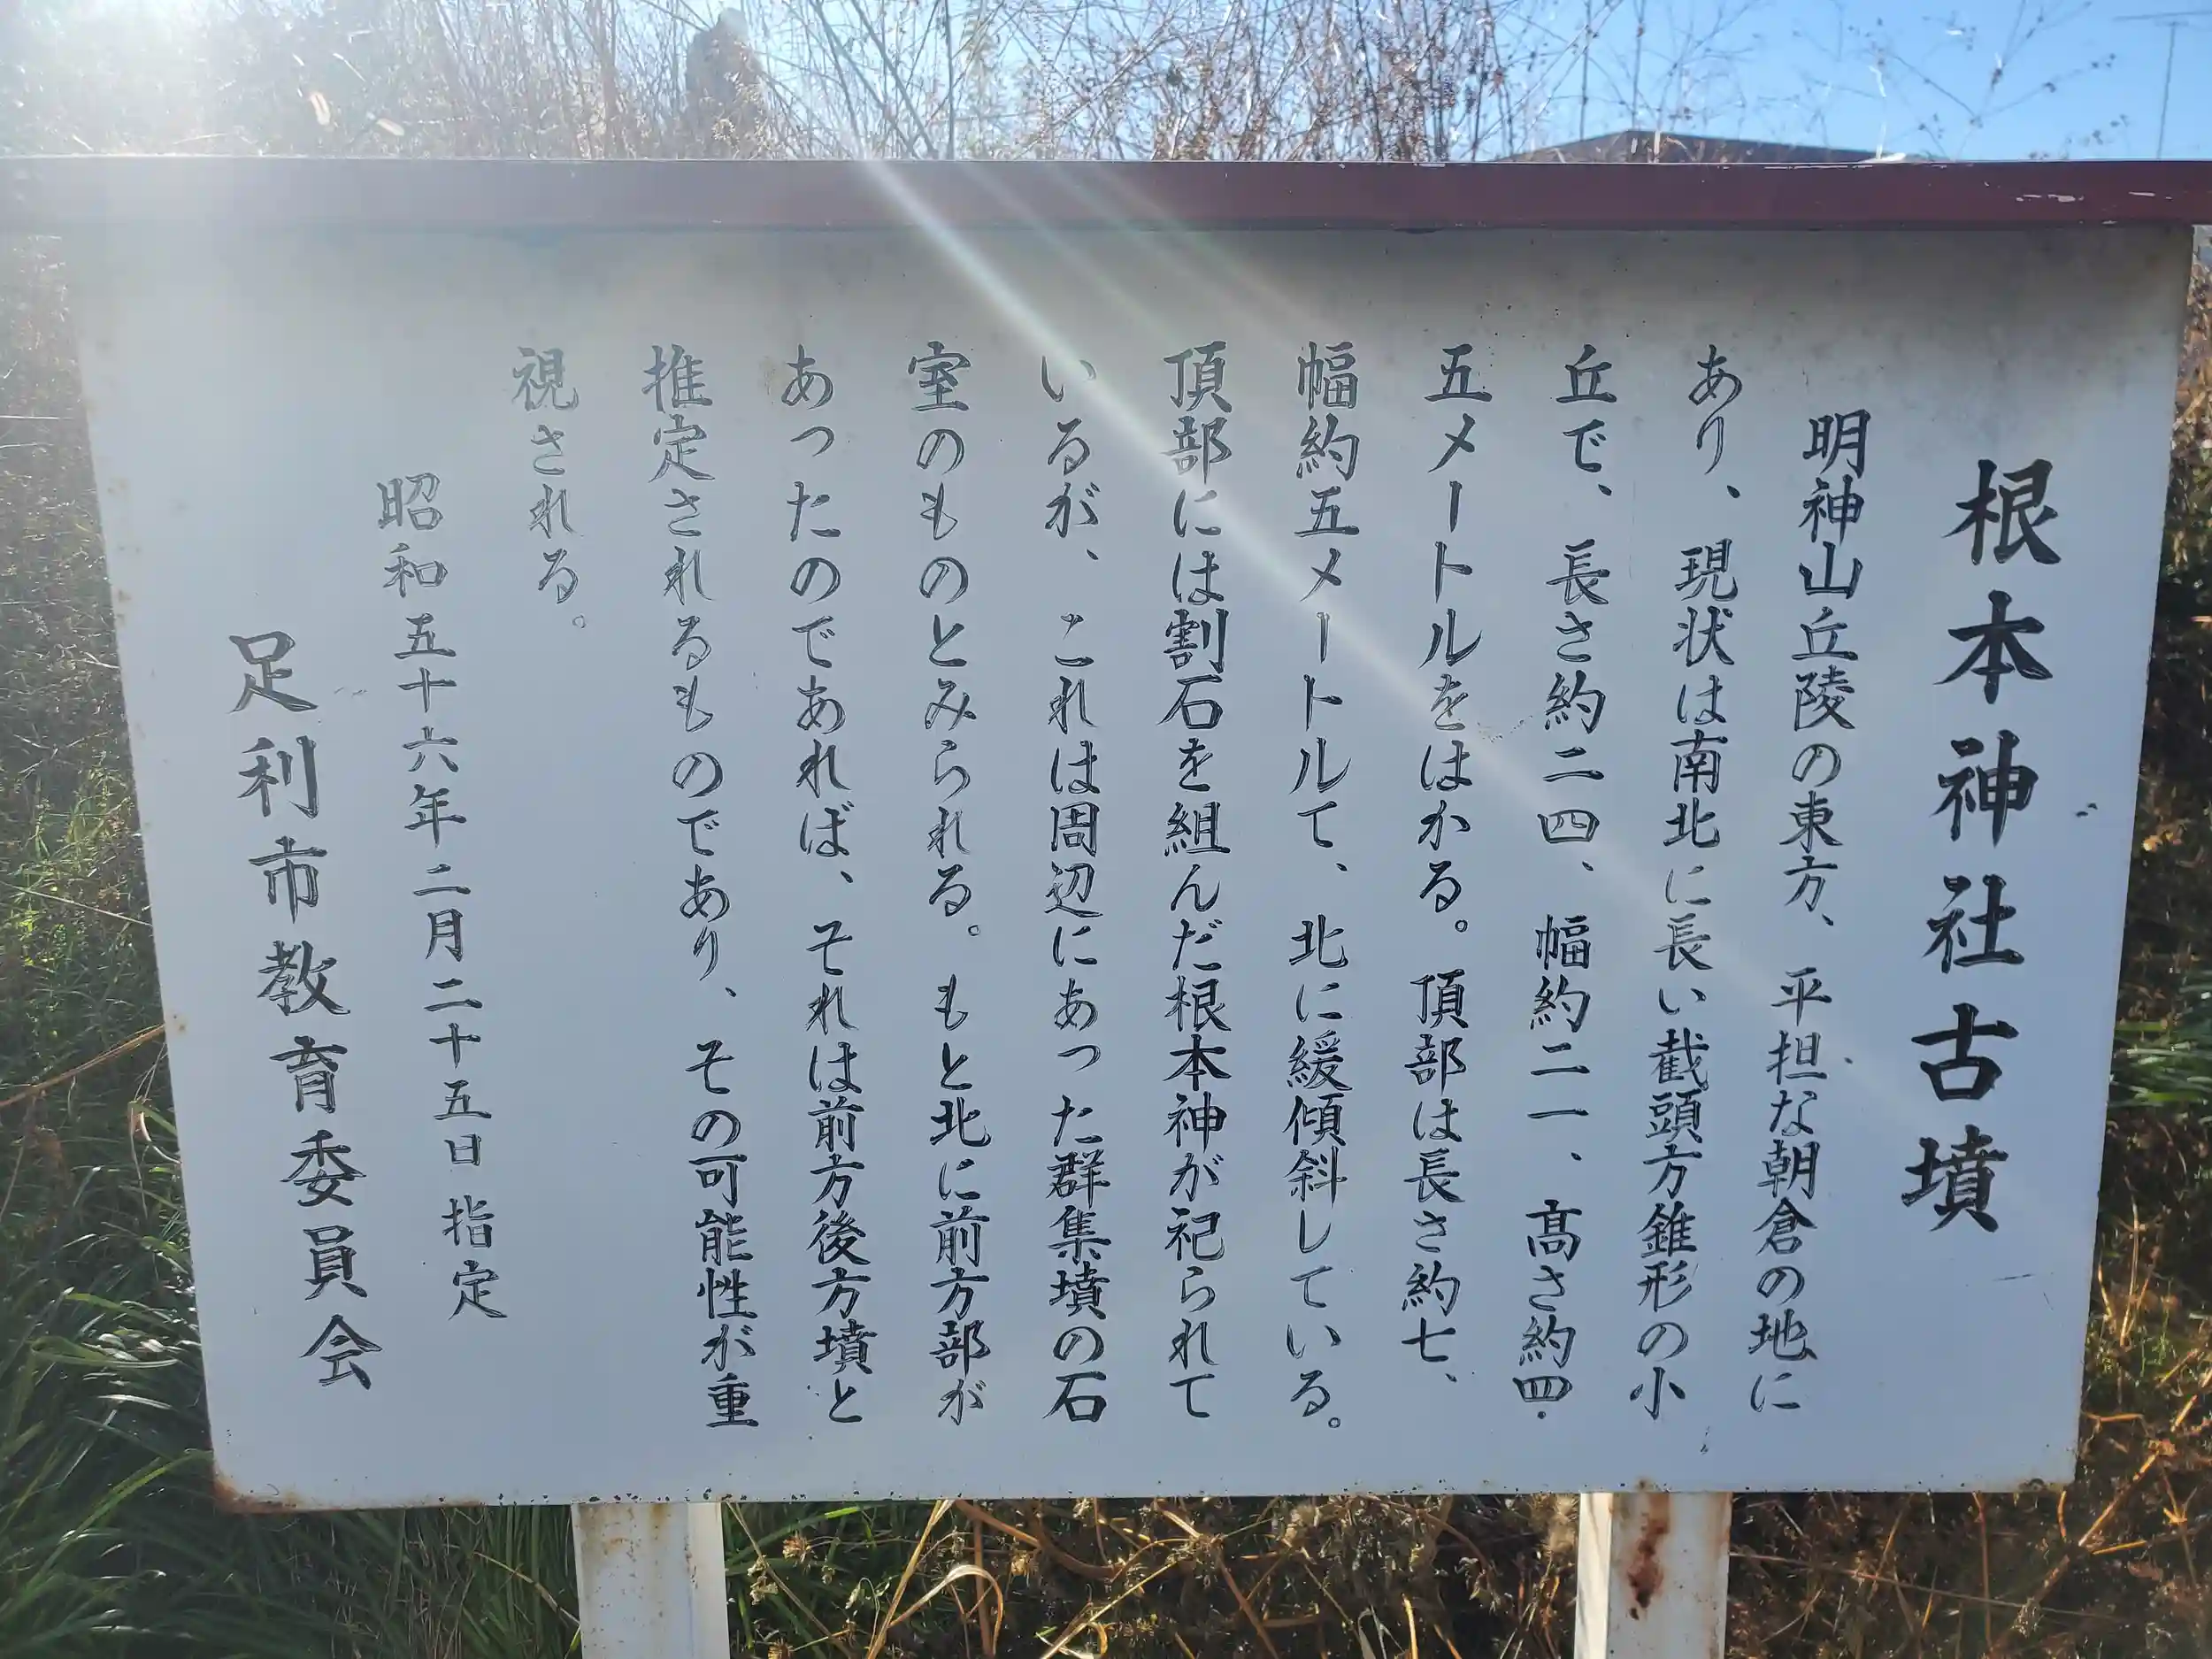 根本神社古墳
明神山丘陵の東方、平担な朝倉の地に
あり、現状は南北に長い截頭方錐形の小
丘で、長さ約二四、幅約二一、高さ約四・
五メートルをはかる。頂部は長さ約七、
幅約五メートルて、北に緩傾斜している。
頂部には割石を組んだ根本神が祀られて
いるが、これは周辺にあった群集墳の石
室のものとみられる。もと北に前方部が
あったのであれば、それは前方後方墳と
推定されるものであり、その可能性が重
視される。
昭和五十六年二月二十五日指定
足利市教育委員会